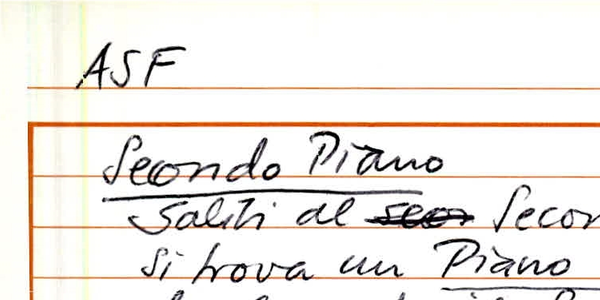 ASF
Secondo Piano
Saliti al Secon
si trova un Piano